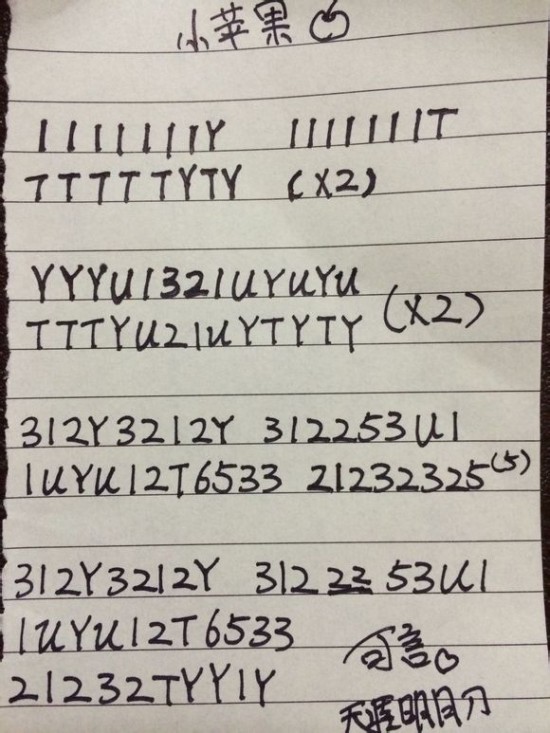 小苹果
IIIIIIIY IIIIIIIT
TTTTTYTY (X2)
YYYU1321UYUYU
TTTYU21UYTYTY (X2)
312Y3212Y 312253U1
1UYU12T6533 21232325(5)
312Y3212Y 3122253U1
1UYU12T6533
21232TYY1Y
天涯明月刀